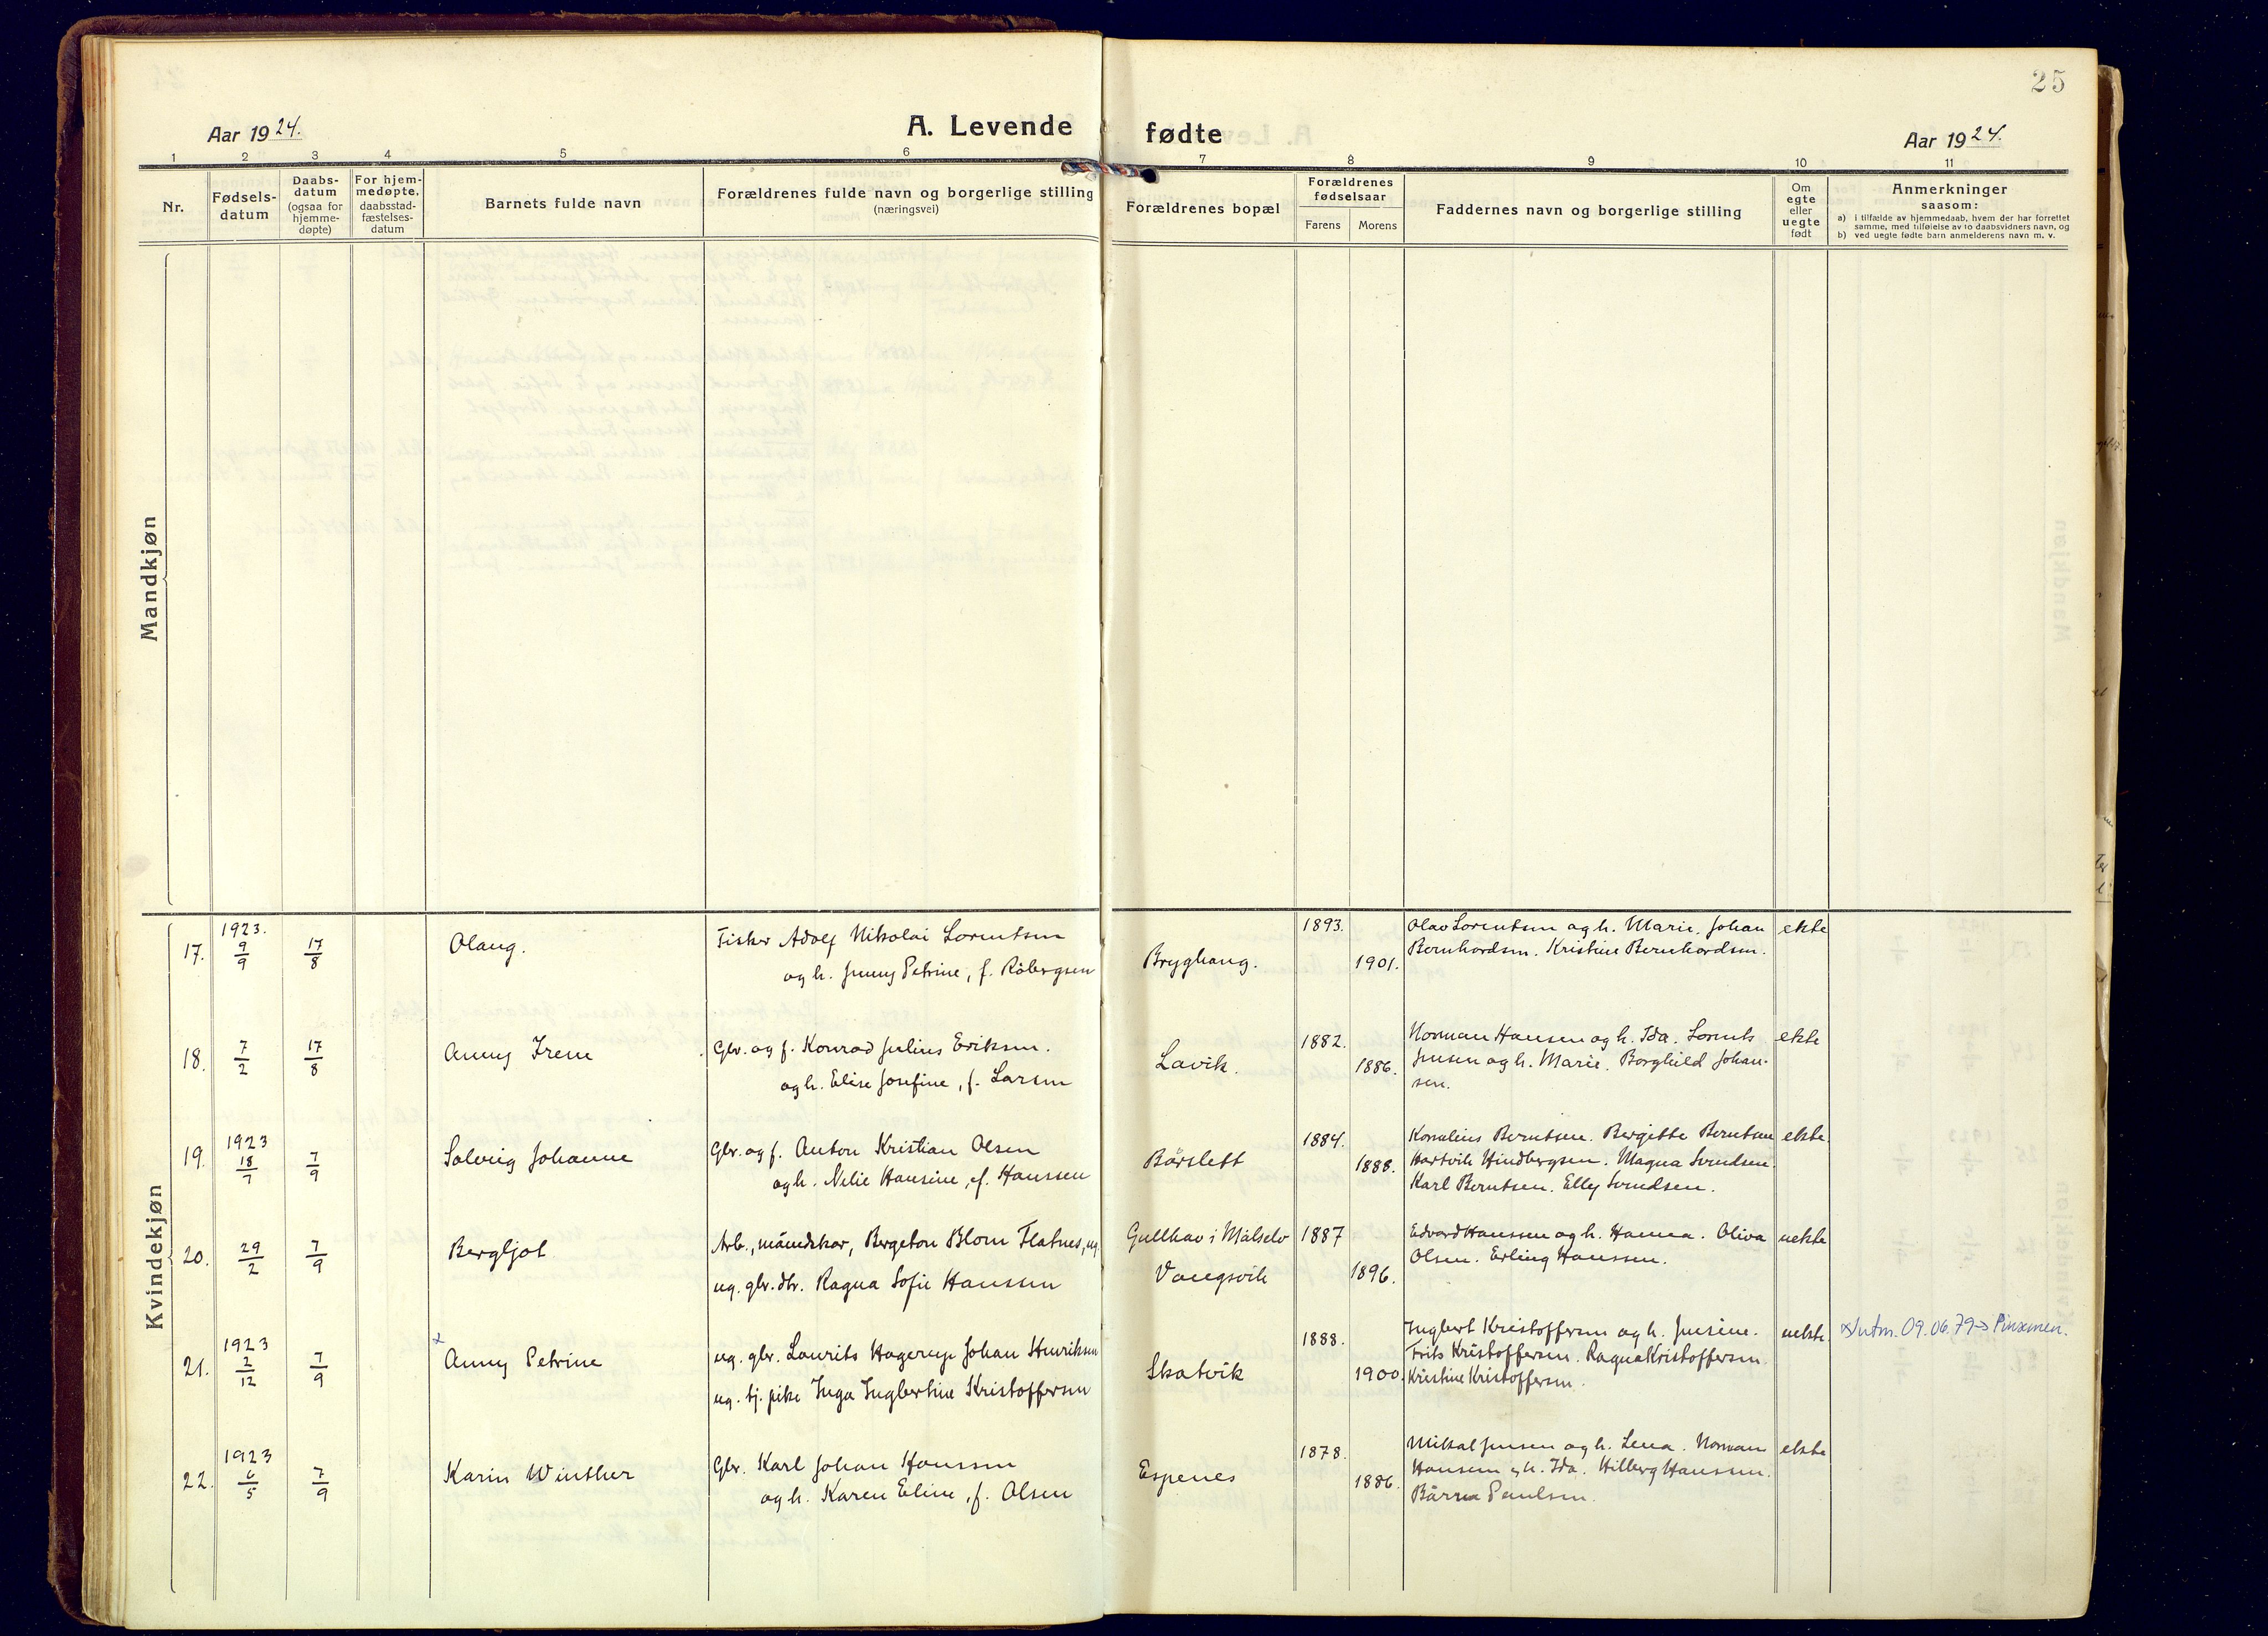 25
Aar 1924.
A. Levende fødte
Aar 1924.
1 2 3 4 5 6 7 8 9 10 11
Nr.
Fødsels-
datum
Daabs-
datum
(ogsaa for
hjemme-
døpte)
For hjem-
medøpte,
daabsstad-
fæstelses-
datum
Barnets fulde navn
Forældrenes fulde navn og borgerlige stilling
(næringsvei)
Forældrenes bopæl
Forældrenes
fødselsaar
Farens Morens
Faddernes navn og borgerlige stilling
Om
egte
eller
uegte
født
Anmerkninger
saasom:
a) i tilfælde av hjemmedaab, hvem der har forrettet
samme, med tilføielse av to daabsvidners navn, og
b) ved uegte fødte barn anmelderens navn m. v.
Mandkjøn
Kvindekjøn
17.
1923.
9/9
17/8
Olaug.
Fisker Adolf Nikolai Lorentsen
og h. Jenny Petrine, f. Röbergsen
Bryghaug.
1893.
1901.
Olav Lorentsen og h. Marie. Johan
Bernhardsen. Kristine Bernhardsen.
ekte
18.
7/2
17/8
Anny Irene
Gbr. og f. Konrad Julius Eriksen.
og h. Elise Josefine, f. Larsen
Lavik.
1882.
1886.
Norman Hansen og h. Ida. Lorents
Jensen og h. Marie. Borghild Johan-
sen.
ekte
19.
1923
18/7
7/9
Solveig Johanne
Gbr. og f. Anton Kristian Olsen
og h. Nelie Hansine, f. Hanssen
Börslett
1884.
1888.
Kornelius Berntsen. Bergitte Berntsen
Hartvik Hindbergsen. Magna Svendsen.
Karl Berntsen. Elly Svendsen.
ekte.
20.
29/2
7/9
Bergljot
Arb., måneskar, Bergeton Blom Flatnes, ug.
ug. gbr. dtr. Ragna Sofie Hanssen
Gullhav i Målselv
Vangsvik
1887
1896.
Edvard Hanssen og h. Hanna. Oliva
Olsen. Erling Hanssen.
uekte
21.
1923
2/12
7/9
x
Anny Petrine
ug. gbr. Laurits Hagerup Johan Henriksen
ug. tj. pike Inga Inglertine Kristoffersen
Skatvik
1888.
1900.
Inglert Kristoffersen og h. Jensine.
Frits Kristoffersen. Ragna Kristoffersen.
Kristine Kristoffersen.
uekte.
x) utm. 09.06.79 →
22.
1923
6/5
7/9
Karin Winther
Gbr. Karl Johan Hanssen
og h. Karen Eline, f. Olsen
Espenes
1878.
1886.
Mikal Jensen og h. Lena. Norman
Hansen og h. Ida. Hilberg Hanssen.
Bårra Paulsen.
ekte